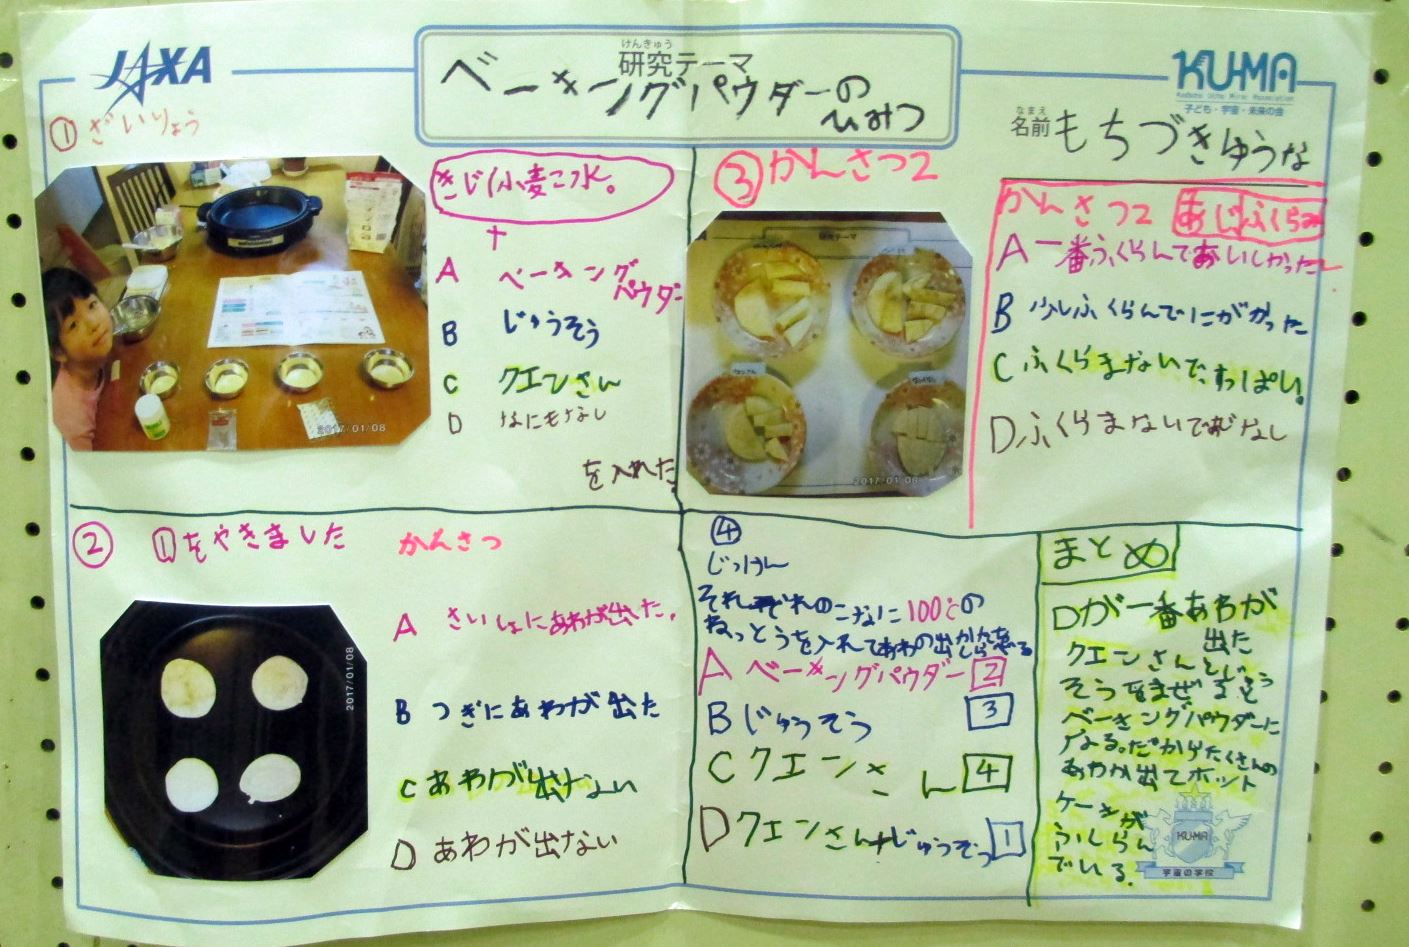 JAXA
けんきゅう
研究テーマ
ベーキングパウダーの
ひみつ
KU-MA
子ども・宇宙・未来の会
なまえ
名前 もちづきゆうな
① ざいりょう
きじ(小麦こ水。
+
A ベーキング
パウダー
B じゅうそう
C クエンさん
D なにもなし
を入れた。
2017/01/08
③ かんさつ2
研究テーマ
2017/01/08
かんさつ2 あじ ふくらみ
A 一番ふくらんでおいしかった
B 少しふくらんでにがかった
C ふくらまないで、すっぱい。
D ふくらまないであじなし
② ①をやきました かんさつ
2017/01/08
A さいしょにあわが出した。
B つぎにあわが出た
C あわが出さない
D あわが出ない
④
じっけん
それぞれのこなに100℃の
ねっとうを入れてあわの出かたをしらべる
A ベーキングパウダー 2
B じゅうそう 3
C クエンさん 4
D クエンさん+じゅうそう 1
まとめ
Dが一番あわが
出た
クエンさんとじゅう
そうをまぜると
ベーキングパウダーに
なる。だからたくさんの
あわが出てホット
ケーキが
ふくらん
でいる。
KU-MA
宇宙の学校